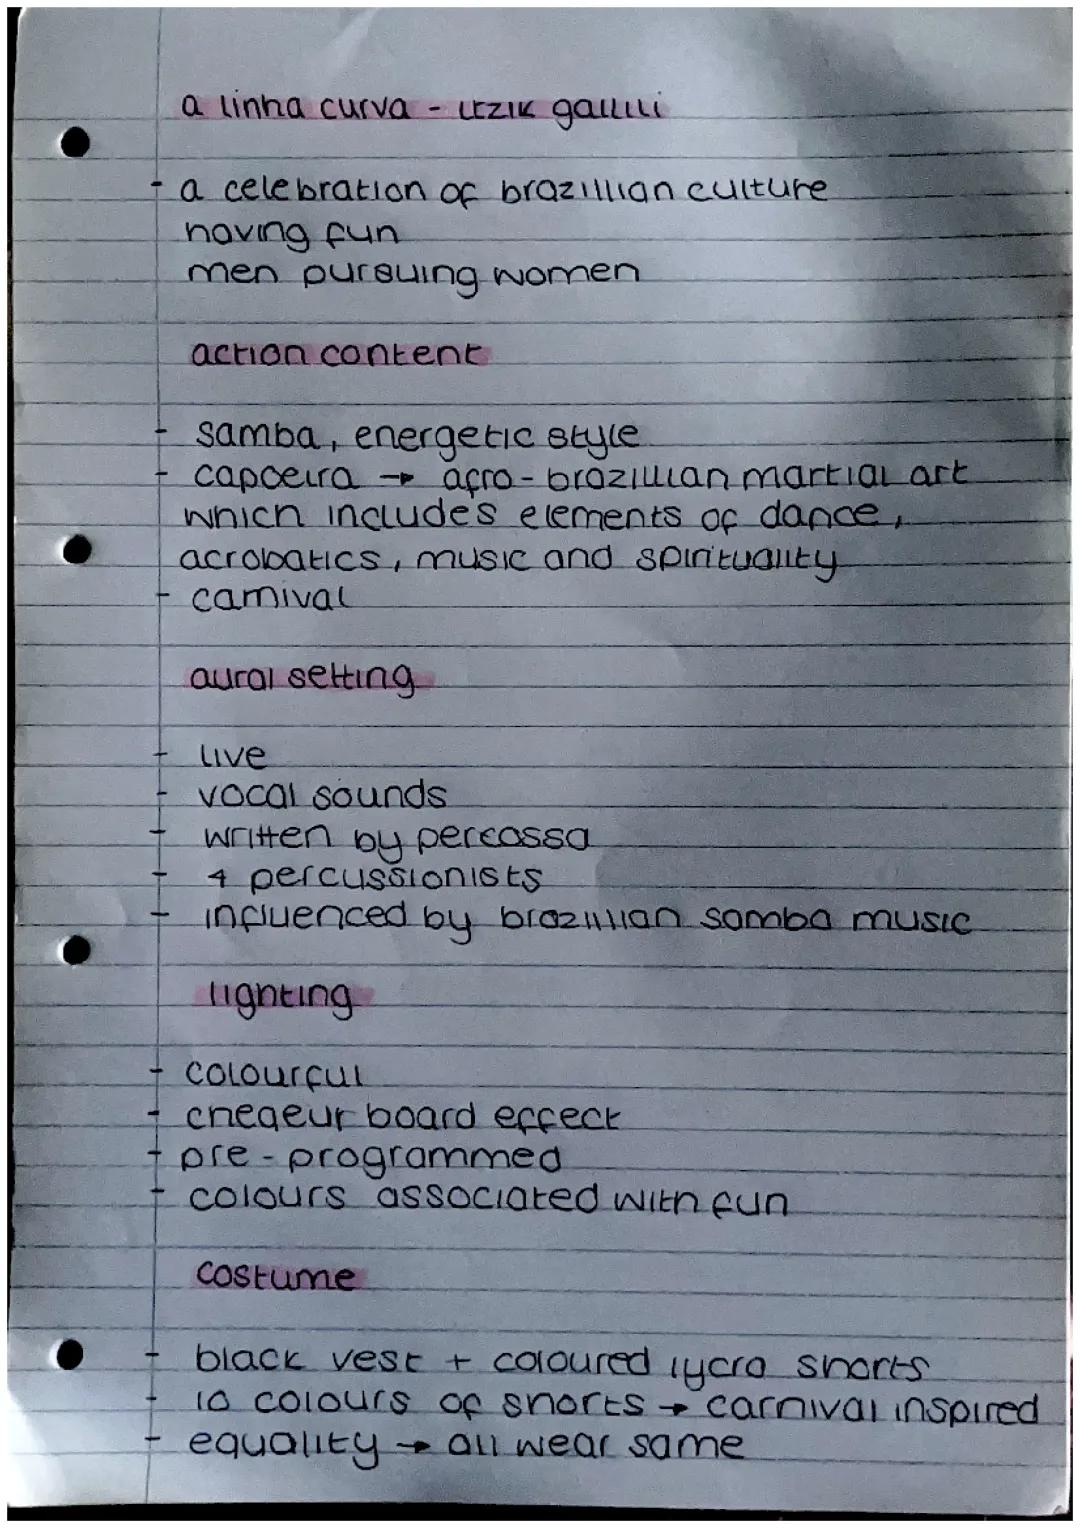 a linha curva - itzik gallili
- a celebration of brazillian culture
having fun
men pursuing women
action content
- samba, energetic style
- capoeira → afro-brazillian martial art
which includes elements of dance,
acrobatics, music and spirituality
- carnival
aural setting
- live
- vocal sounds
- written by percossa
- 4 percussionists
- influenced by brazillian samba music
lighting
- colourful
- cheqeur board effect
- pre-programmed
- colours associated with fun
costume
- black vest + coloured lycra shorts
- 10 colours of shorts → carnival inspired
- equality → all wear same